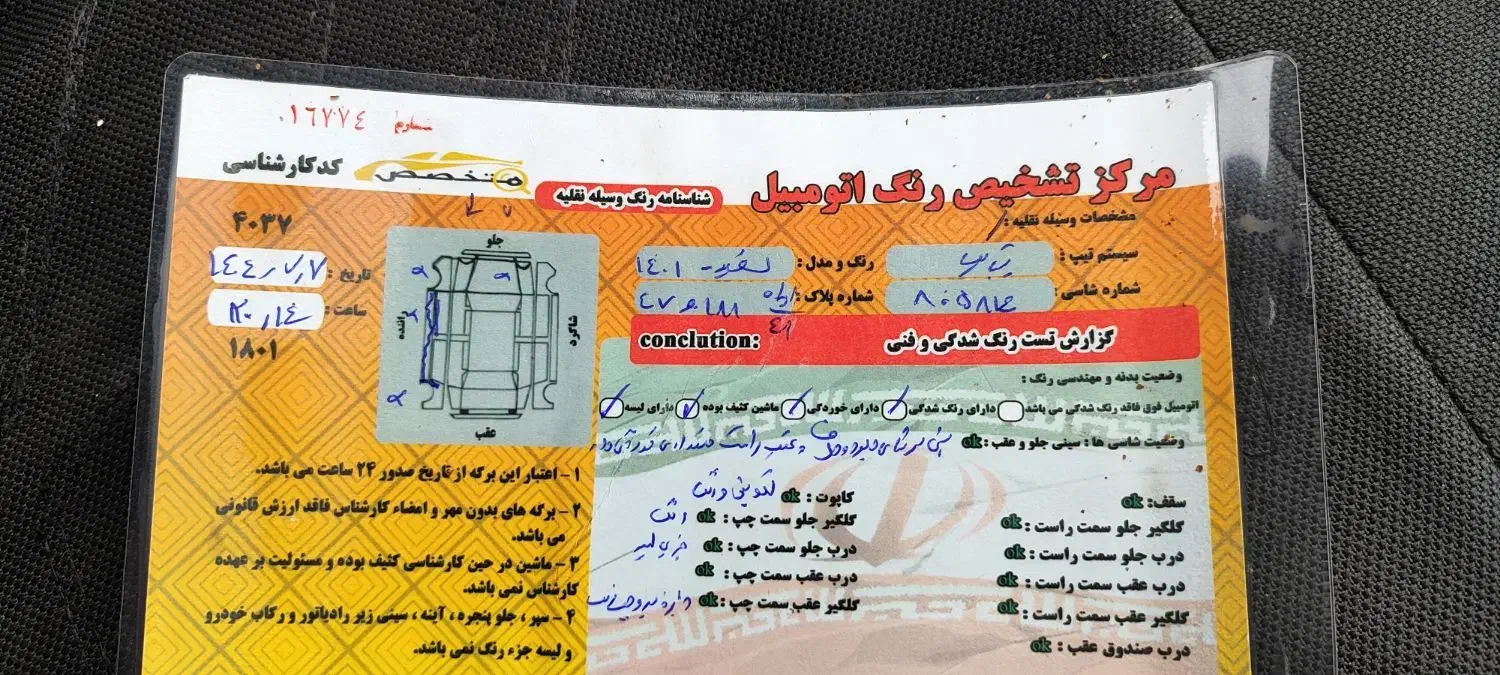 شماره ۰۱۶۷۷٤
متخصص
کدکارشناسی
۴۰۳۷
مرکز تشخیص رنگ اتومبیل
شناسنامه رنگ وسیله نقلیه
مشخصات وسیله نقلیه :
سیستم تیپ :
رنگ و مدل : ۱٤۰۱
شماره شاسی :
شماره پلاک :
تاریخ :
ساعت :
۱۸۰۱
جلو
راننده
شاگرد
عقب
گزارش تست رنگ شدگی و فنی
conclution:
وضعیت بدنه و مهندسی رنگ :
اتومبیل فوق فاقد رنگ شدگی می باشد دارای رنگ شدگی دارای خوردگی ماشین کثیف بوده دارای لیسه
وضعیت شاسی ها : سینی جلو و عقب : ok
سقف : ok
کاپوت : ok
گلگیر جلو سمت راست : ok
گلگیر جلو سمت چپ : ok
درب جلو سمت راست : ok
درب جلو سمت چپ : ok
درب عقب سمت راست : ok
درب عقب سمت چپ : ok
گلگیر عقب سمت راست : ok
گلگیر عقب سمت چپ : ok
درب صندوق عقب : ok
۱ - اعتبار این برگه از تاریخ صدور ۲۴ ساعت می باشد.
۲ - برگه های بدون مهر و امضاء کارشناس فاقد ارزش قانونی
می باشد.
۳ - ماشین در حین کارشناسی کثیف بوده و مسئولیت بر عهده
کارشناس نمی باشد.
۴ - سپر ، جلو پنجره ، آینه ، سینی زیر رادیاتور و رکاب خودرو
و لیسه جزء رنگ نمی باشد.